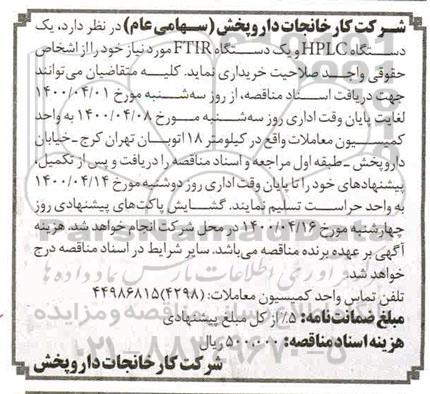 شرکت کارخانجات داروپخش (سهامی عام) در نظر دارد، یک
دستگاه HPLC و یک دستگاه FTIR مورد نیاز خود را از اشخاص
حقوقی واجد صلاحیت خریداری نماید. کلیه متقاضیان می‌توانند
جهت دریافت اسناد مناقصه، از روز سه‌شنبه مورخ ۱۴۰۰/۰۴/۰۱
لغایت پایان وقت اداری روز سه‌شنبه مورخ ۱۴۰۰/۰۴/۰۸ به واحد
کمیسیون معاملات واقع در کیلومتر ۱۸ اتوبان تهران کرج ـ خیابان
داروپخش ـ طبقه اول مراجعه و اسناد مناقصه را دریافت و پس از تکمیل،
پیشنهادهای خود را تا پایان وقت اداری روز دوشنبه مورخ ۱۴۰۰/۰۴/۱۴
به واحد حراست تسلیم نمایند. گشایش پاکت‌های پیشنهادی روز
چهارشنبه مورخ ۱۴۰۰/۰۴/۱۶ در محل شرکت انجام خواهد شد. هزینه
آگهی بر عهده برنده مناقصه می‌باشد. سایر شرایط در اسناد مناقصه درج
خواهد شد.
تلفن تماس واحد کمیسیون معاملات: (۴۲۹۸) ۴۴۹۸۶۸۱۵
مبلغ ضمانت‌نامه: ۵٪ از کل مبلغ پیشنهادی
هزینه اسناد مناقصه: ۵۰۰،۰۰۰ ریال
شرکت کارخانجات داروپخش